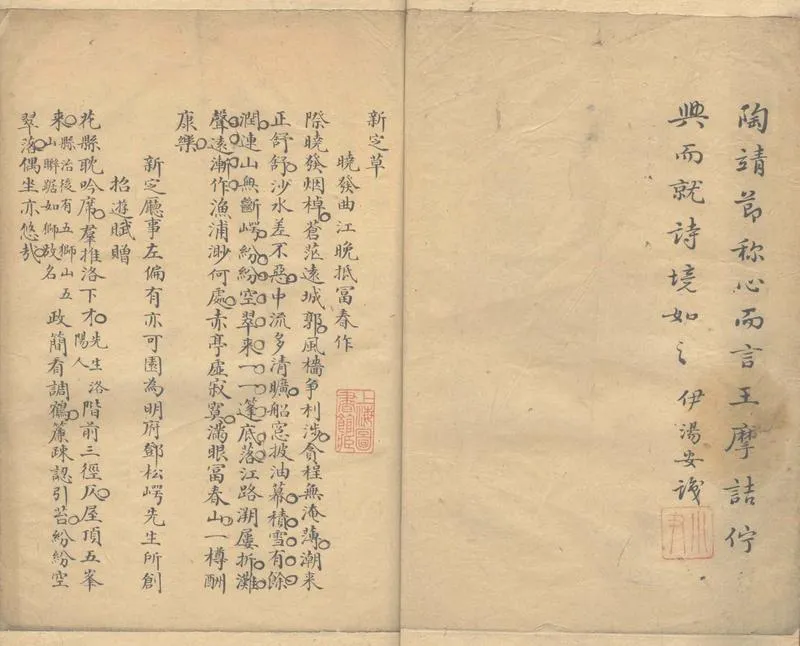 陶靖節称心而言王摩詰佇
興而就詩境如之 伊湯安識
新定草
曉發曲江晚抵冨春作
際曉發烟棹蒼茫遠城郭風檣争利涉貪程無淹薄潮来
正舒舒沙水差不惡中流多清曠船窓披油幕積雪有餘
潤連山無斷崿紛紛空翠来一一篷底落江路溯屢折灘
聲遠漸作漁浦渺何處赤亭虚寂寞滿眼冨春山一樽酬
康樂
新定廳事左偏有亦可園為明府鄧松崿先生所創
招遊賦贈
花縣耽吟席羣推洛下才先生洛陽人階前三徑仄屋頂五峯
来縣治後有五獅山五山聯踞如獅故名政簡看調鶴簾疎認引苔紛紛空
翠落偶坐亦悠哉
上海圖書館藏